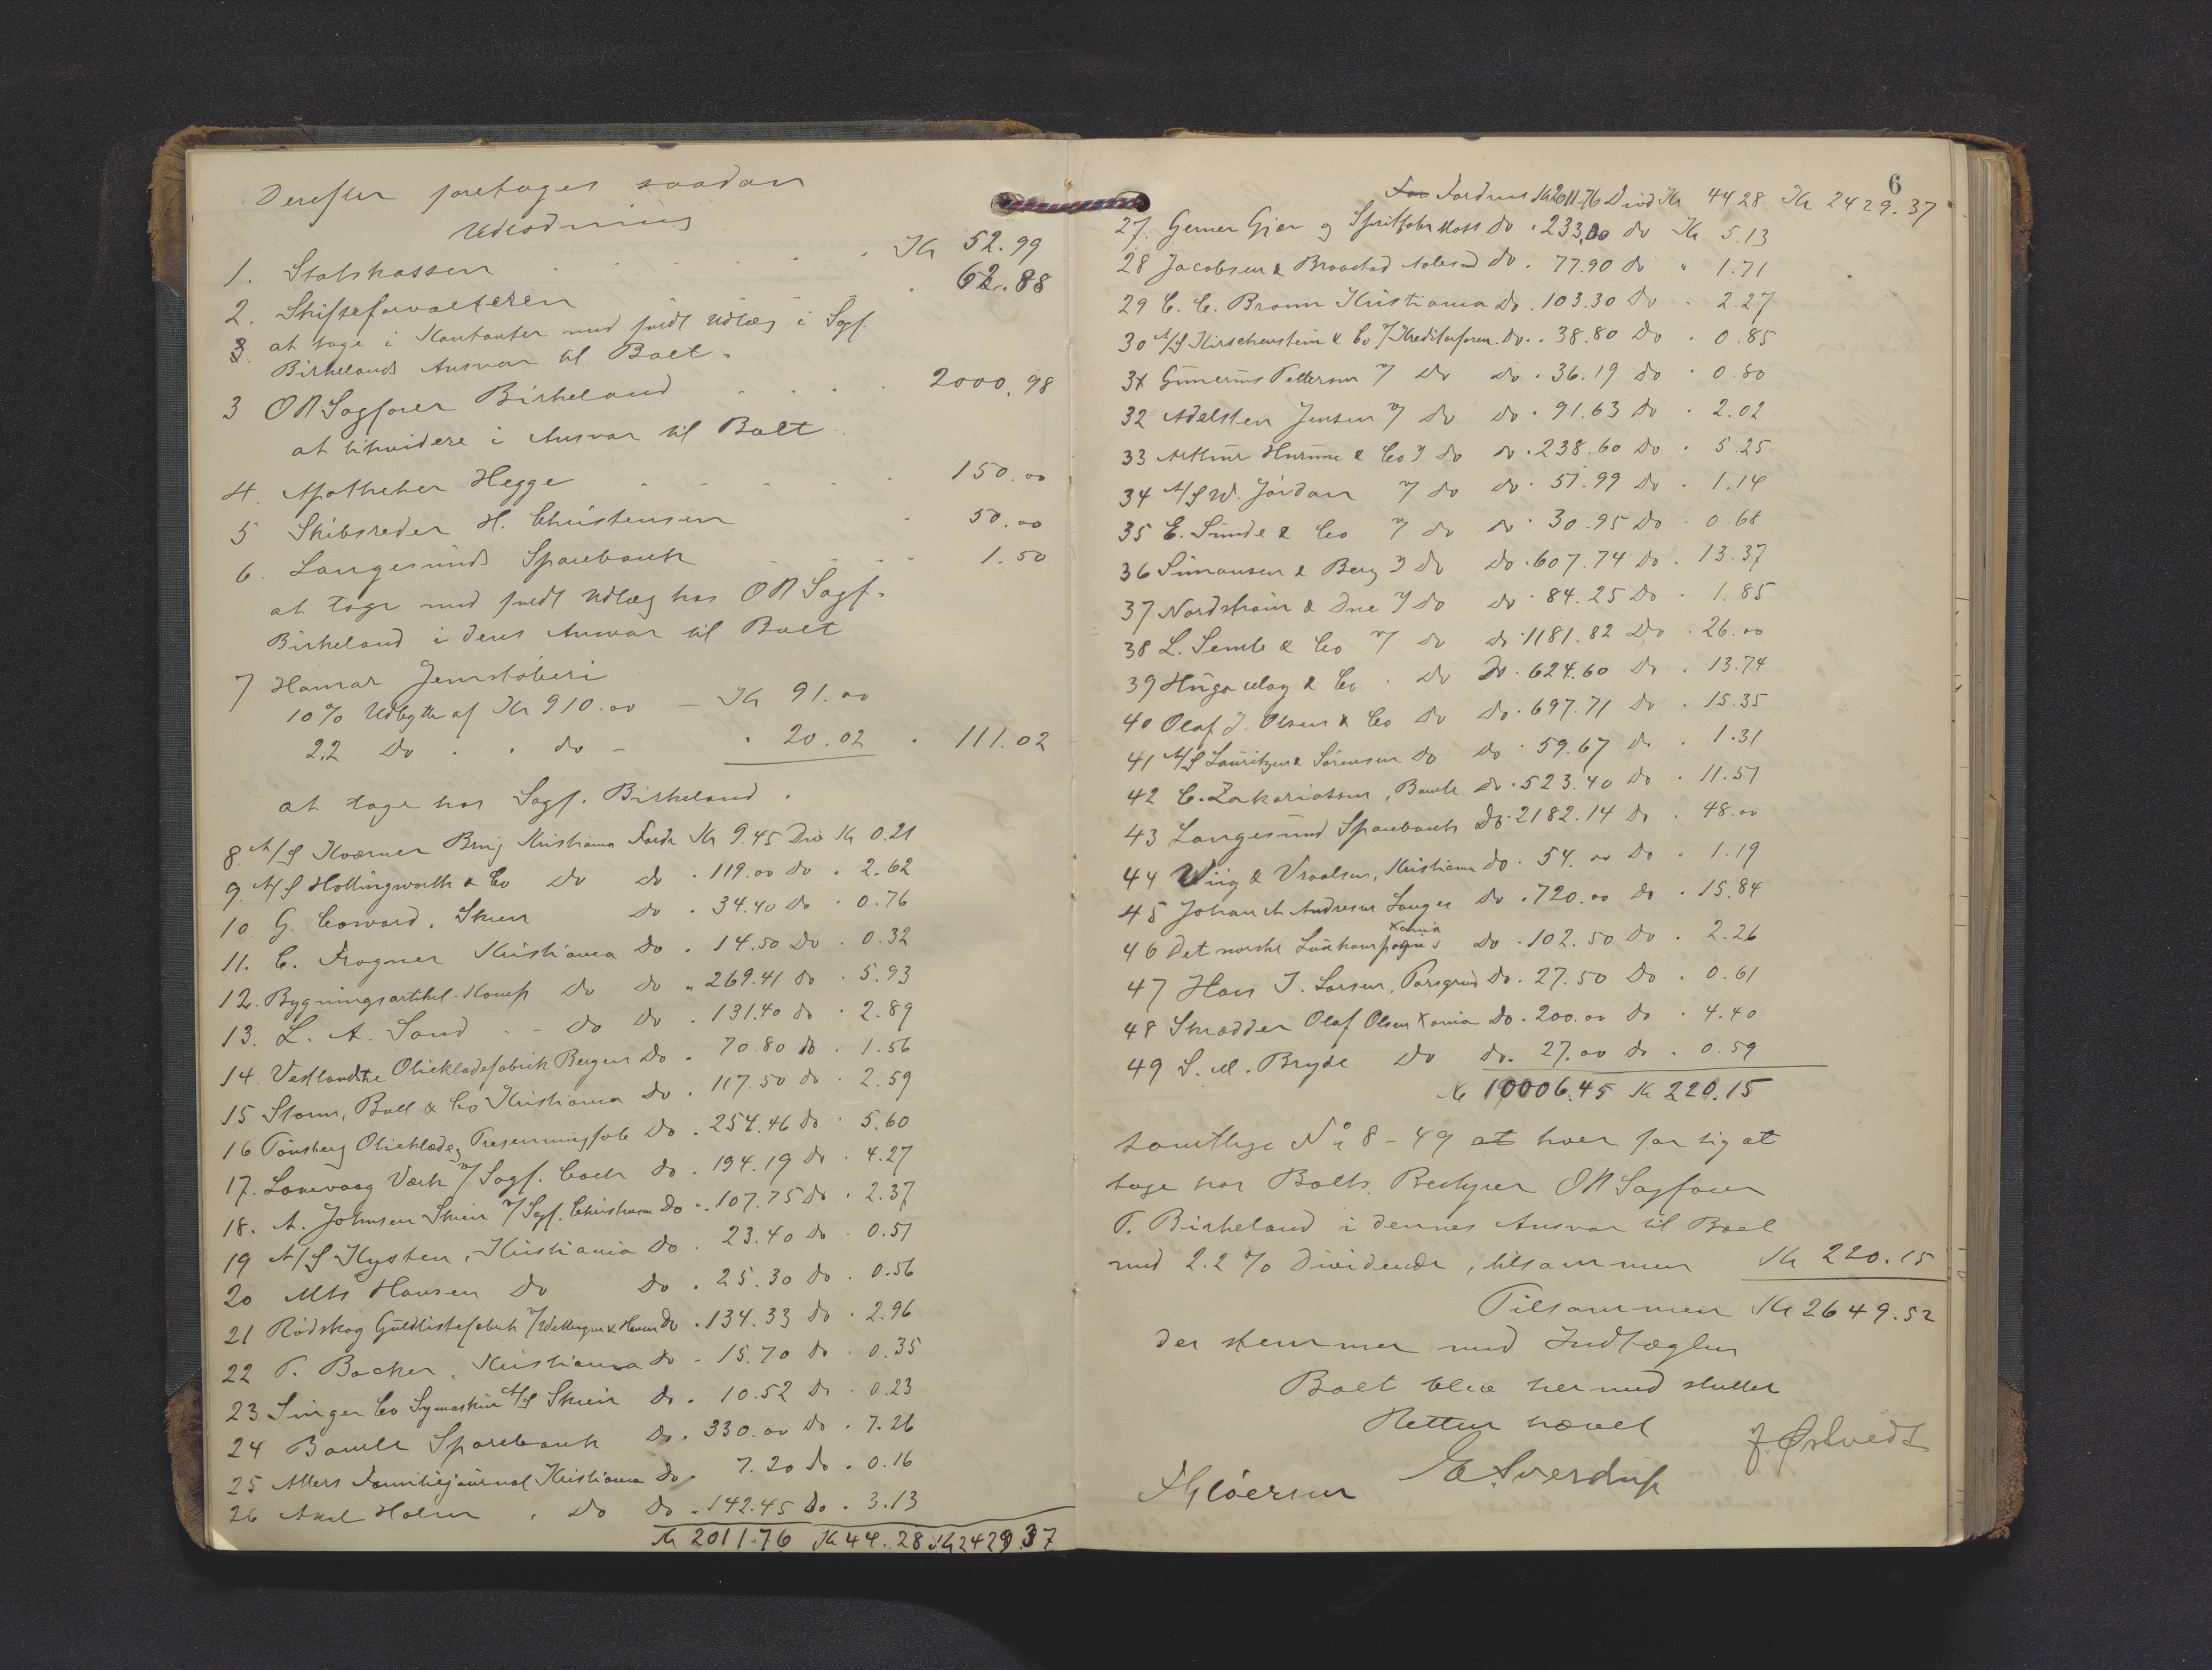 Derefter foretoges saadan
Udlodning
1. Statskassen . . . . . . Kr 52.99
2. Skifteforvalteren . 62.88
3. at tage i Kontanter med fuldt Udlæg i Sagf.
Birkelands Ansvar til Boet.
3 ORSagfører Birkeland . . . . 2000.98
at likvidere i Ansvar til Boet
4. Apotheker Hegge - - - - - 150.00
5 Skibsreder H. Christensen . 50.00
6. Langesunds Sparebank - - - - 1.50
at tage med fuldt Udlæg hos OR Sagf.
Birkeland i deres Ansvar til Boet
7 Hamar Jernstøberi
10% Udbytte af Kr 910.00 — Kr 91.00
2,2 Do . . do - . 20.02 . 111.02
at tage hos Sagf. Birkeland.
8. A/S Kværner Brug Kristiania Fordr Kr 9.45 Div Kr 0.21
9. A/S Hollingworth & Co Do Do . 119.00 Do . 2.62
10. G. Coward, Skien Do . 34.40 Do . 0.76
11. C. Frogner Kristiania Do . 14.50 Do . 0.32
12. Bygningsartikel-Komp Do Do " 269.41 Do . 5.93
13. L. A. Sand - - Do Do . 131.40 Do . 2.89
14. Vestlandske Olieklædefabrik Bergen Do . 70.80 Do . 1.56
15 Storm, Bull & Co Kristiania Do . 117.50 Do . 2.59
16 Tønsberg Olieklæde og Presenningfab Do . 254.46 Do . 5.60
17. Lonevaag Værk v/ Sagf. Coch Do . 194.19 Do . 4.27
18. A. Johnsen Skien v/ Sagf. Christensen Do . 107.75 Do . 2.37
19 A/S Kysten, Kristiania Do . 23.40 Do . 0.51
20 Mts Hansen Do Do . 25.30 Do . 0.56
21 Rødskog Guldlistefabrik v/ & Do . 134.33 Do . 2.96
22 T. Backer, Kristiania Do . 15.70 Do . 0.35
23 Singer Co Symaskin A/S Skien Do . 10.52 Do . 0.23
24 Bamle Sparebank Do . 330.00 Do . 7.26
25 Allers Familiejournal Kristiania Do . 7.20 Do . 0.16
26 Axel Holm . Do Do . 142.45 Do . 3.13
Kr 2011.76 Kr 44.28 Kr 2429.37
6
For Fordrer Kr 2011.76 Divid Kr 44.28 Kr 2429.37
27. Gerner Gjær og Spritfabr Moss Do . 233.00 Do Kr 5.13
28 Jacobsen & Braastad Aalesund Do . 77.90 Do " 1.71
29 C. C. Bronn Kristiania Do . 103.30 Do . 2.27
30 A/S Hirschenstein & Co v/ Kreditorforen. Do . 38.80 Do . 0.85
31 Gunerius Pettersen v/ Do Do . 36.19 Do . 0.80
32 Adelsten Jensen v/ Do Do . 91.63 Do . 2.02
33 Arthur Hurum & Co v/ Do Do . 238.60 Do . 5.25
34 A/S W. Jordan v/ Do Do . 51.99 Do . 1.14
35 E. Sunde & Co v/ Do Do . 30.95 Do . 0.68
36 Simonsen & Berg v/ Do Do . 607.74 Do . 13.37
37 Nordstrøm & Due v/ Do Do . 84.25 Do . 1.85
38 L. Semb & Co v/ Do Do . 1181.82 Do . 26.00
39 Hugo May & Co . Do Do . 624.60 Do . 13.74
40 Olaf J. Olsen & Co Do Do . 697.71 Do . 15.35
41 A/S Lauritzen & Sørensen Do Do . 59.67 Do . 1.31
42 C. Zakariassen, Bamle Do . 523.40 Do . 11.51
43 Langesund Sparebank Do . 2182.14 Do . 48.00
44 Wiig & Vraalsen, Kristiania Do . 54.00 Do . 1.19
45 Johan A. Andresen Langes Do . 720.00 Do . 15.84
46 Det norske Luxkompagnie Xania Do . 102.50 Do . 2.26
47 Hans J. Larsen, Porsgrund Do . 27.50 Do . 0.61
48 Skrædder Olaf Olsen Xania Do . 200.00 Do . 4.40
49 S. M. Bryde Do Do . 27.00 Do . 0.59
Kr 10006.45 Kr 220.15
samtlige No 8-49 at hver for sig at
tage hos Boets Bestyrer OR Sagfører
T. Birkeland i dennes Ansvar til Boet
med 2.2 % Dividende, tilsammen Kr 220.15
Tilsammen Kr 2649.52
der stemmer med Indtægten
Boet blev hermed sluttet
Retten hævet
E Sverdrup J. Østvedt